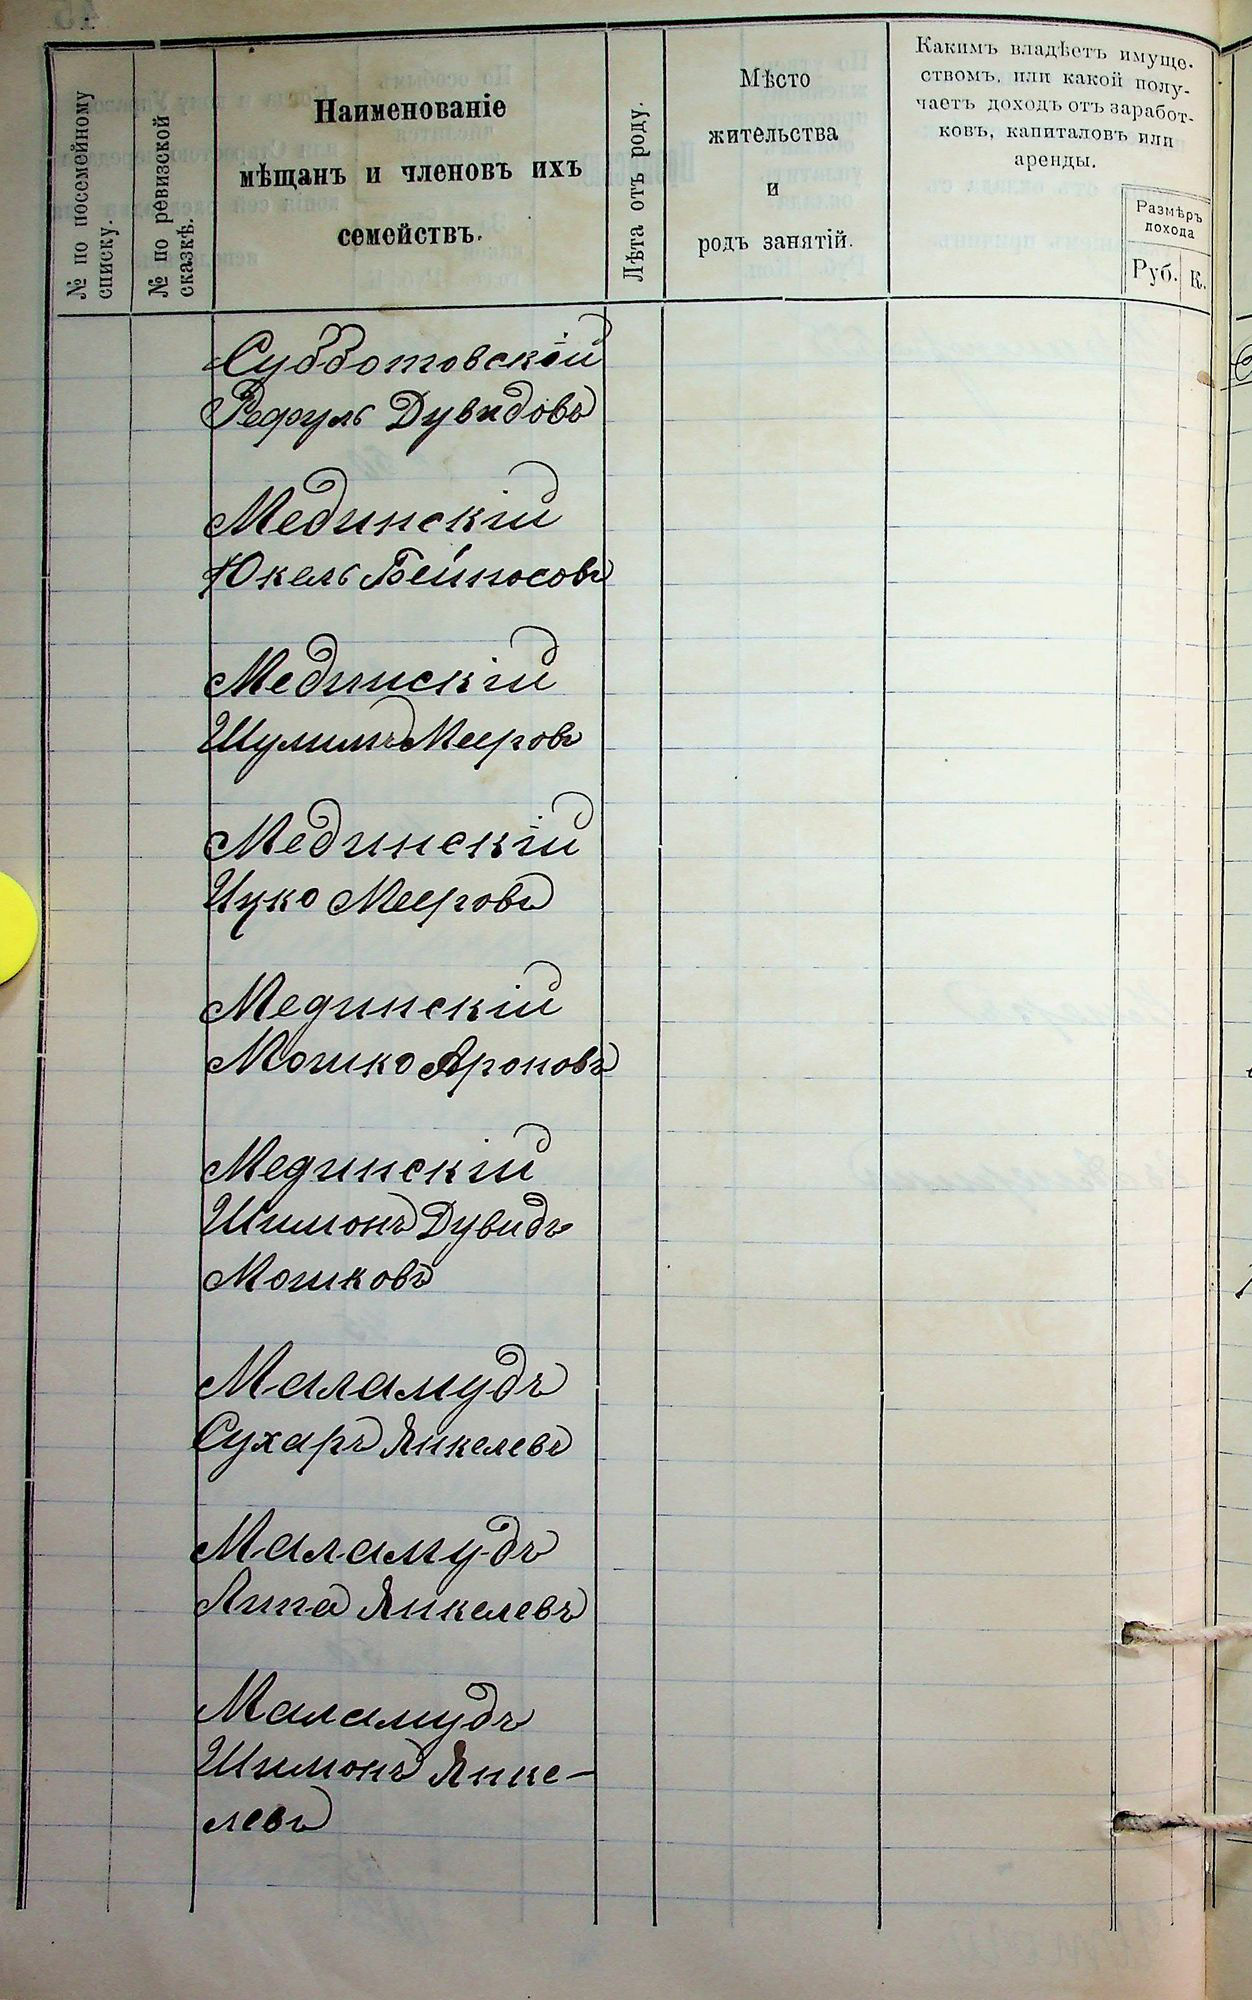 № по посемейному
списку.
№ по ревизской
сказкѣ.
Наименованіе
мѣщанъ и членовъ ихъ
семействъ.
Лѣта отъ роду.
Мѣсто
жительства
и
родъ занятій.
Какимъ владѣетъ имуще-
ствомъ, или какой полу-
чаетъ доходъ отъ заработ-
ковъ, капиталовъ или
аренды.
Размѣръ
дохода
Руб.
К.
Субботовскій
Рефуль Дувидовъ
Мединскій
Юкель Бейносовъ
Мединскій
Шулимъ Мееровъ
Мединскій
Ицко Мееровъ
Мединскій
Мошко Ароновъ
Мединскій
Шимонъ Дувидъ
Мошковъ
Маламудъ
Сухаръ Янкелевъ
Маламудъ
Янкелевъ
Маламудъ
Шимонъ Янке-
левъ